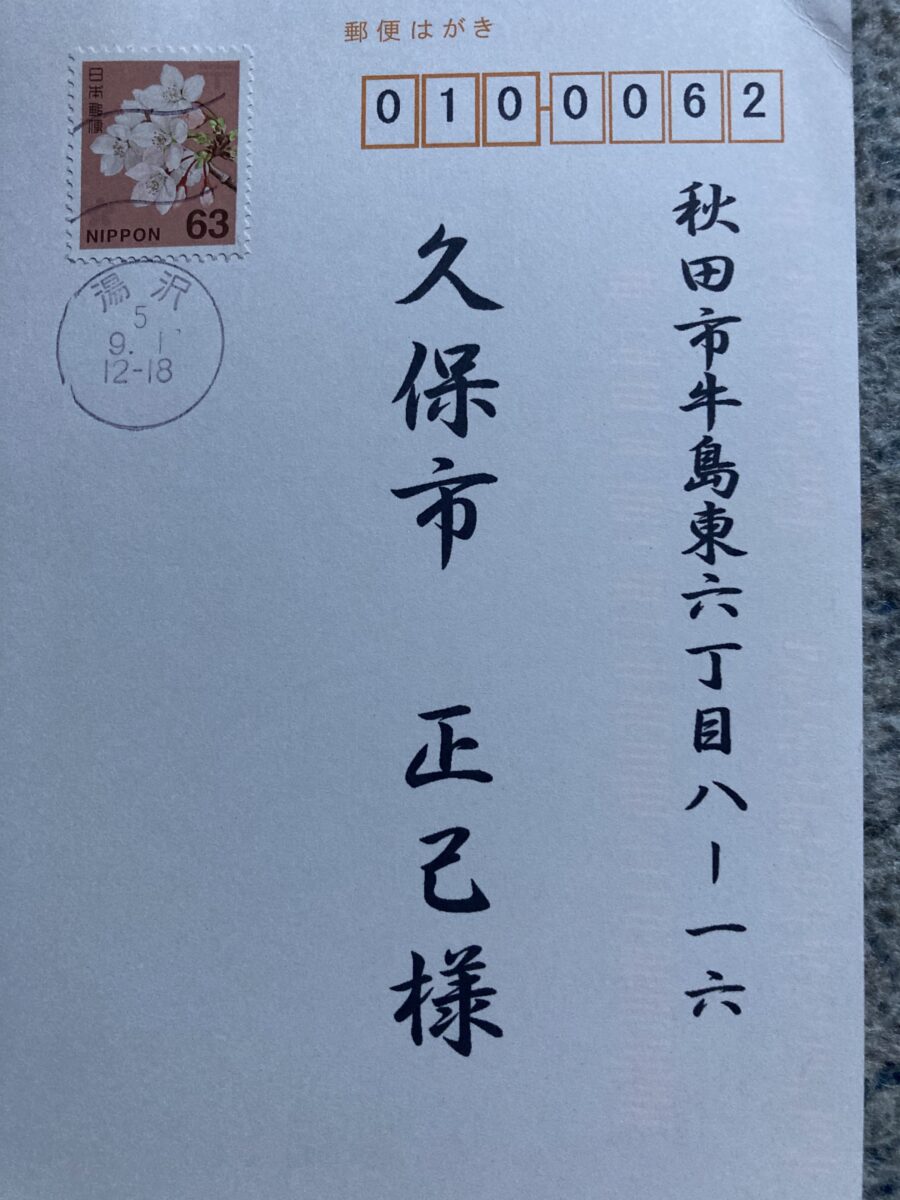 郵便はがき
010-0062
秋田市牛島東六丁目八ー一六
久保市 正己様
日本郵便
NIPPON 63
湯沢
5
9. 1
12-18